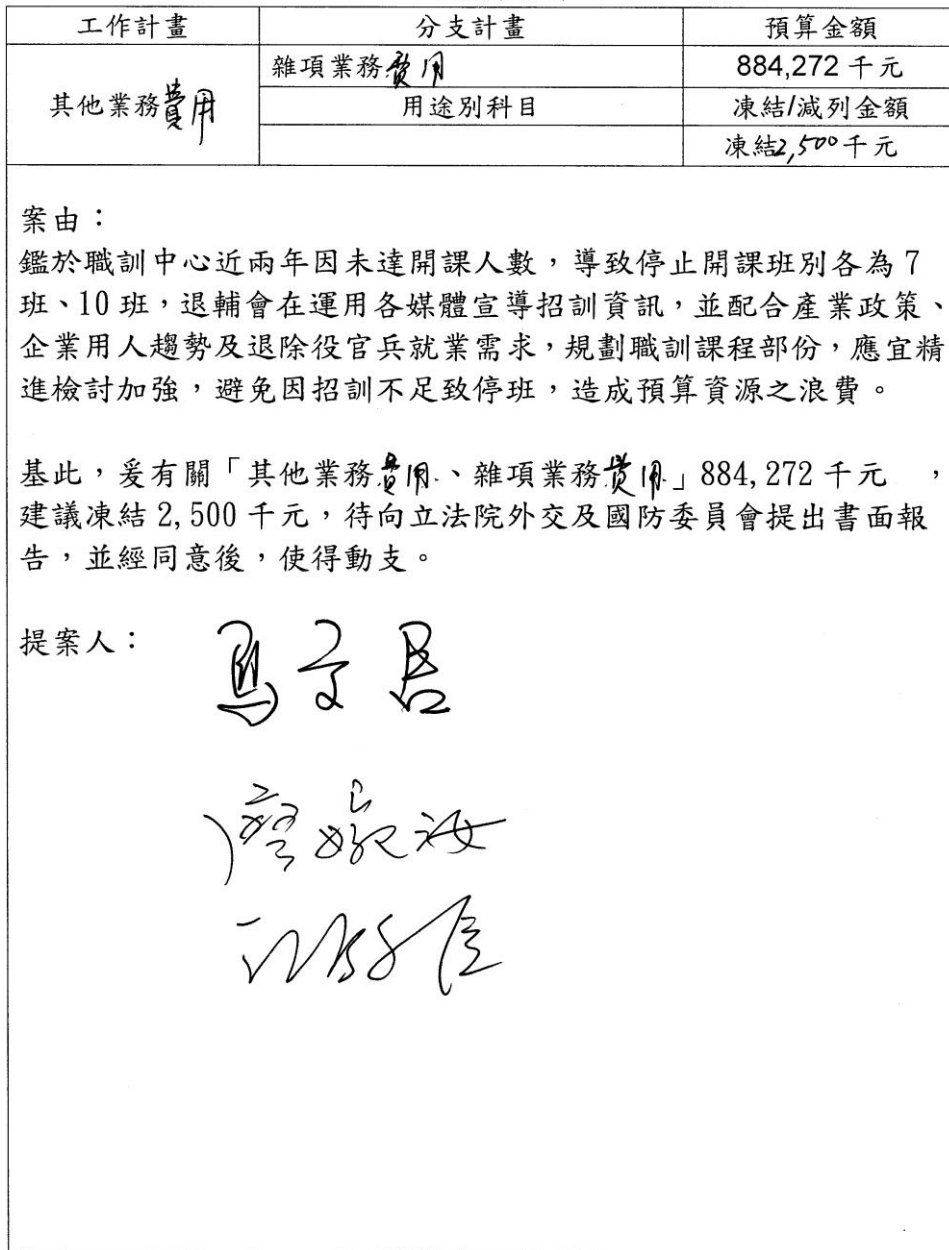 工作計畫 分支計畫 預算金額
其他業務費用 雜項業務費用 884,272千元
用途別科目 凍結/減列金額
凍結2,500千元
案由：
鑑於職訓中心近兩年因未達開課人數，導致停止開課班別各為7
班、10班，退輔會在運用各媒體宣導招訓資訊，並配合產業政策、
企業用人趨勢及退除役官兵就業需求，規劃職訓課程部份，應宜精
進檢討加強，避免因招訓不足致停班，造成預算資源之浪費。
基此，爰有關「其他業務費用、雜項業務費用」884,272千元　，
建議凍結2,500千元，待向立法院外交及國防委員會提出書面報
告，並經同意後，使得動支。
提案人：
馬文君
廖婉汝